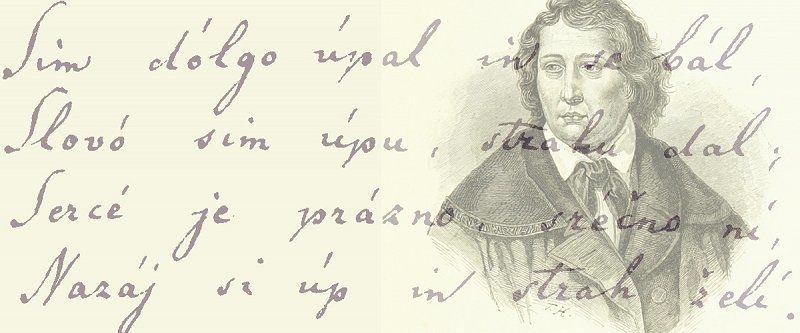 Sim dólgo úpal in se bál,
Slovó sim úpu, strahu dal;
Sercé je prázno, sréčno ní,
Nazáj si úp in strah želí.